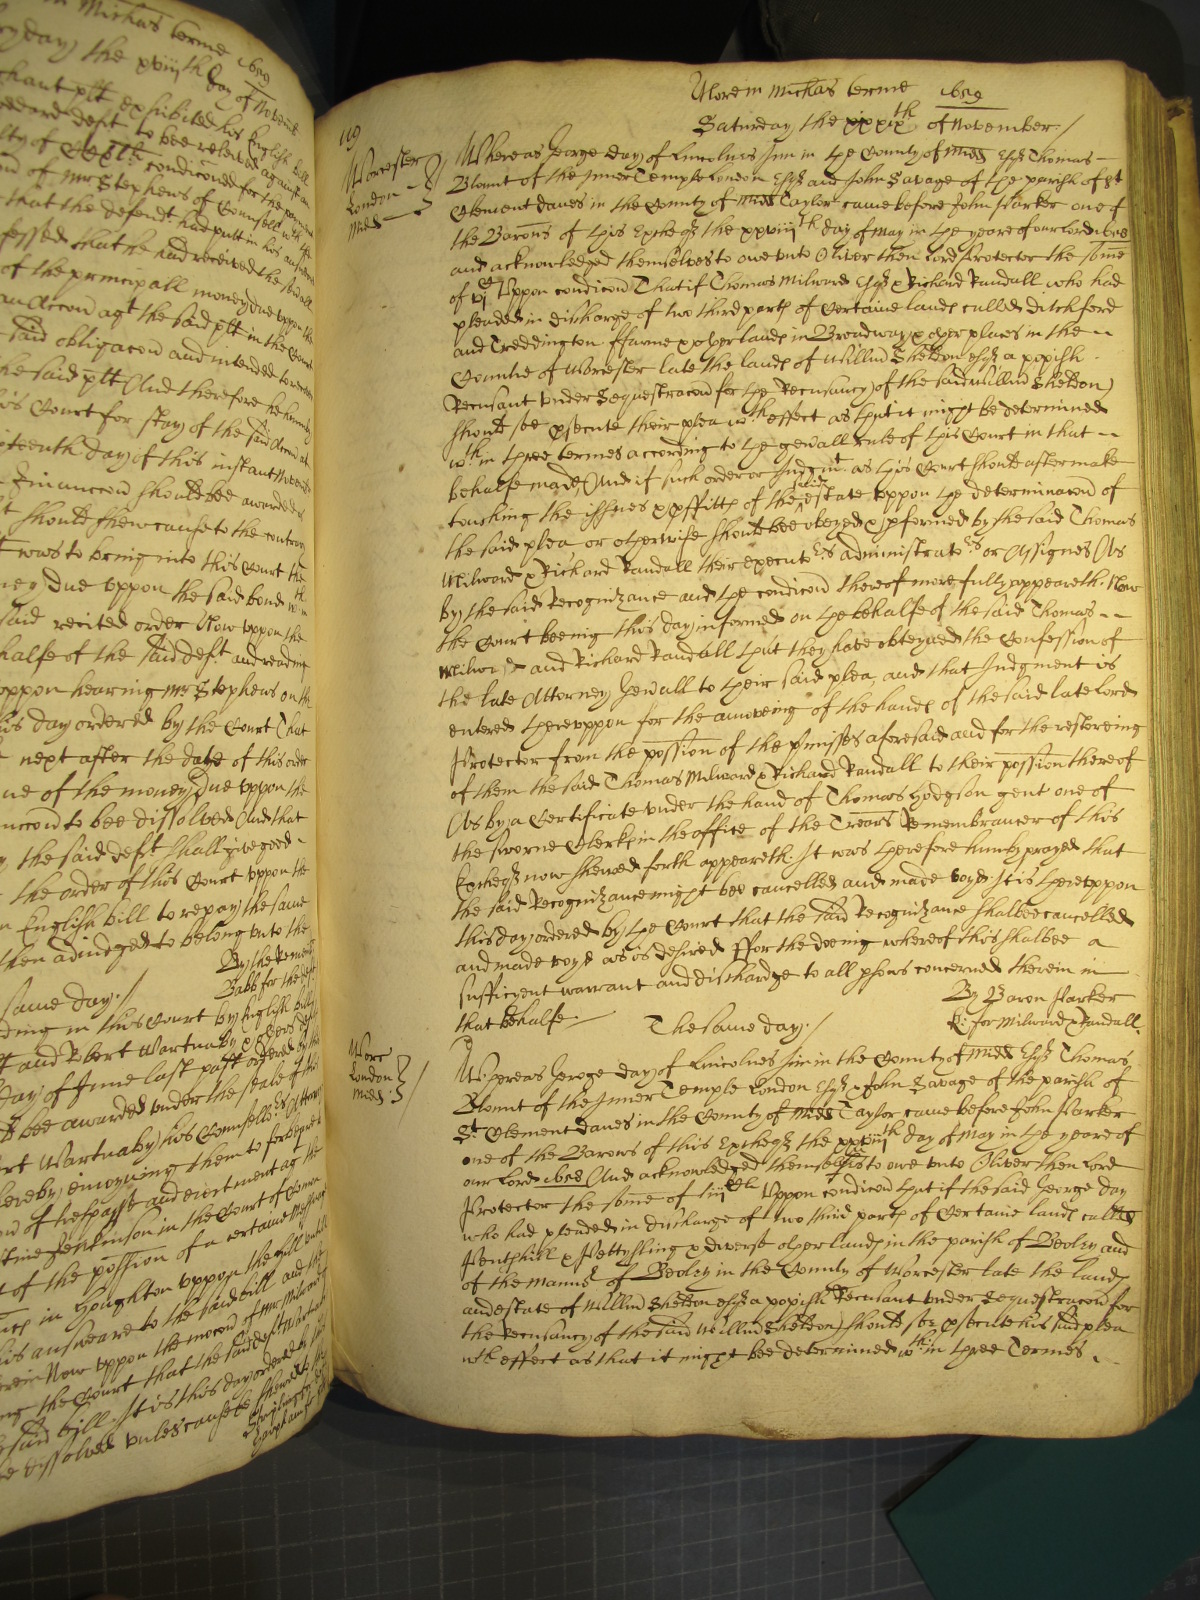 in Michas terme 1659
day the xviijth day of Novemb
chant plt exhibited his English bill
defendt to bee releived against an
condiconed for the
of Mr Stephens of Counsell wth the
that the defendt had putt in his answere
fessed that he had received the
of the principall money due uppon the
an Accon agt the said plt in the Court
said obligacon and intended to
the said plt And therefore he humbly
his Court for stay of the said Accon at
teenth day of this instant Novemb
Iniunccon should bee awarded
should shew cause to the contrary
was to bring into this Court the
ney due uppon the said bond wthin
said recited order Now uppon the
halfe of the said deft and reading
uppon hearing Mr Stephens on the
his day ordered by the Court That
next after the date of this order
ue of the money due uppon the
unccon to bee dissolved And that
the said deft shall give good
the order of this Court uppon the
English bill to repay the same
then adiudged to belong unto the
By the
Babb for the deft
same day./
ding in this Court by English bill
and Robert Wartnaby & others
day of June last past ordered by
bee awarded under the seale of this
ert Wartnaby his Counsellrs Attorn
hereby enioyning them to forbeare
of trespasse and eiectment agt the
Jenkinson in the Court of Comon
of the possion of a certaine Messuage
in Houghton uppon the bill untill
his answeare to the said bill and the
rein Now uppon the mocon of Mr
ing the Court that the said deft Wartnab
said bill It is this day ordered by the
dissolved unles cause bee shewed
More in Michas terme 1659
119
Saturday the xxvjth of November./
Worcester
London
Midd
Whereas George Day of Lincolnes Inn in the County of Midd Esqr Thomas
Blount of the Inner Temple London Esqr and John Savage of the parish of St
Clement Danes in the County of Midd Taylor came before John Parker one of
the Barons of this Excheqr the xxviijth day of May in the yeare of our Lord 1658
and acknowledged themselves to owe unto Oliver then Lord Protector the some
of Uppon condicon That if Thomas Milward Esqr & Richard Randall who had
pleaded in discharge of two third parts of certaine lands called Ditchford
and Treddington ffarme & other lands in Broadway & other places in the
Countie of Worcester late the lands of Willm Sheldon Esqr a popish
Recusant under Sequestracon for the Recusancy of the said Willm Sheldon
should soe psecute their plea wth effect as that it might be determined
wthin three termes according to the genrall rule of this Court in that
behalfe made And if such order or Judgmt as this Court should after make
touching the issues & pffitts of the said estate uppon the determinacon of
the said plea or otherwise should bee obeyed & pformed by the said Thomas
Milward & Richard Randall their executrs administratrs or Assignes As
by the said Recognizance and the condicon thereof more fully appeareth. Now
the Court beeing this day informed on the behalfe of the said Thomas
Milward and Richard Randall that they have obteyned the confession of
the late Attorney Genrall to their said plea, and that Judgment is
entered thereuppon for the amoveing of the hands of the said late Lord
Protector from the possion of the pmisses aforesaid and for the restoreing
of them the said Thomas Milward & Richard Randall to their possion thereof
As by a Certificate under the hand of Thomas Hodgson gent one of
the sworne Clerks in the office of the Trears Remembrancer of this
Excheqr now shewed forth appeareth. It was therefore humbly prayed that
the said Recognizance might bee cancelled and made voyd. It is thereuppon
this day ordered by the Court that the said Recognizance shalbee cancelled
and made voyd as is desired ffor the doeing whereof this shalbee a
sufficyent warrant and dischardge to all psons concerned therein in
that behalfe
By Baron Parker
for Milward & Randall.
The same day./
Worc
London
Midd
Whereas George Day of Lincolnes Inn in the County of Midd Esqr Thomas
Blount of the Inner Temple London Esqr & John Savage of the parish of
St Clement Danes in the County of Midd Taylor came before John Parker
one of the Barons of this Excheqr the xxviijth day of May in the yeare of
our Lord 1658 And acknowledged themselves to owe unto Oliver then Lord
Protector the some of Uppon condicon that if the said George Day
who had pleaded in discharge of two third parts of certaine lands called
Penthill & Pettyfling & diverse other lands in the parish of Beoley and
of the Mannor of Beoley in the County of Worcester late the lands
and estate of Willm Sheldon Esqr a popish Recusant under Sequestracon for
the Recusancy of the said Willm Sheldon) should soe psecute his said plea
wth effect as that it might bee determined wthin three Termes